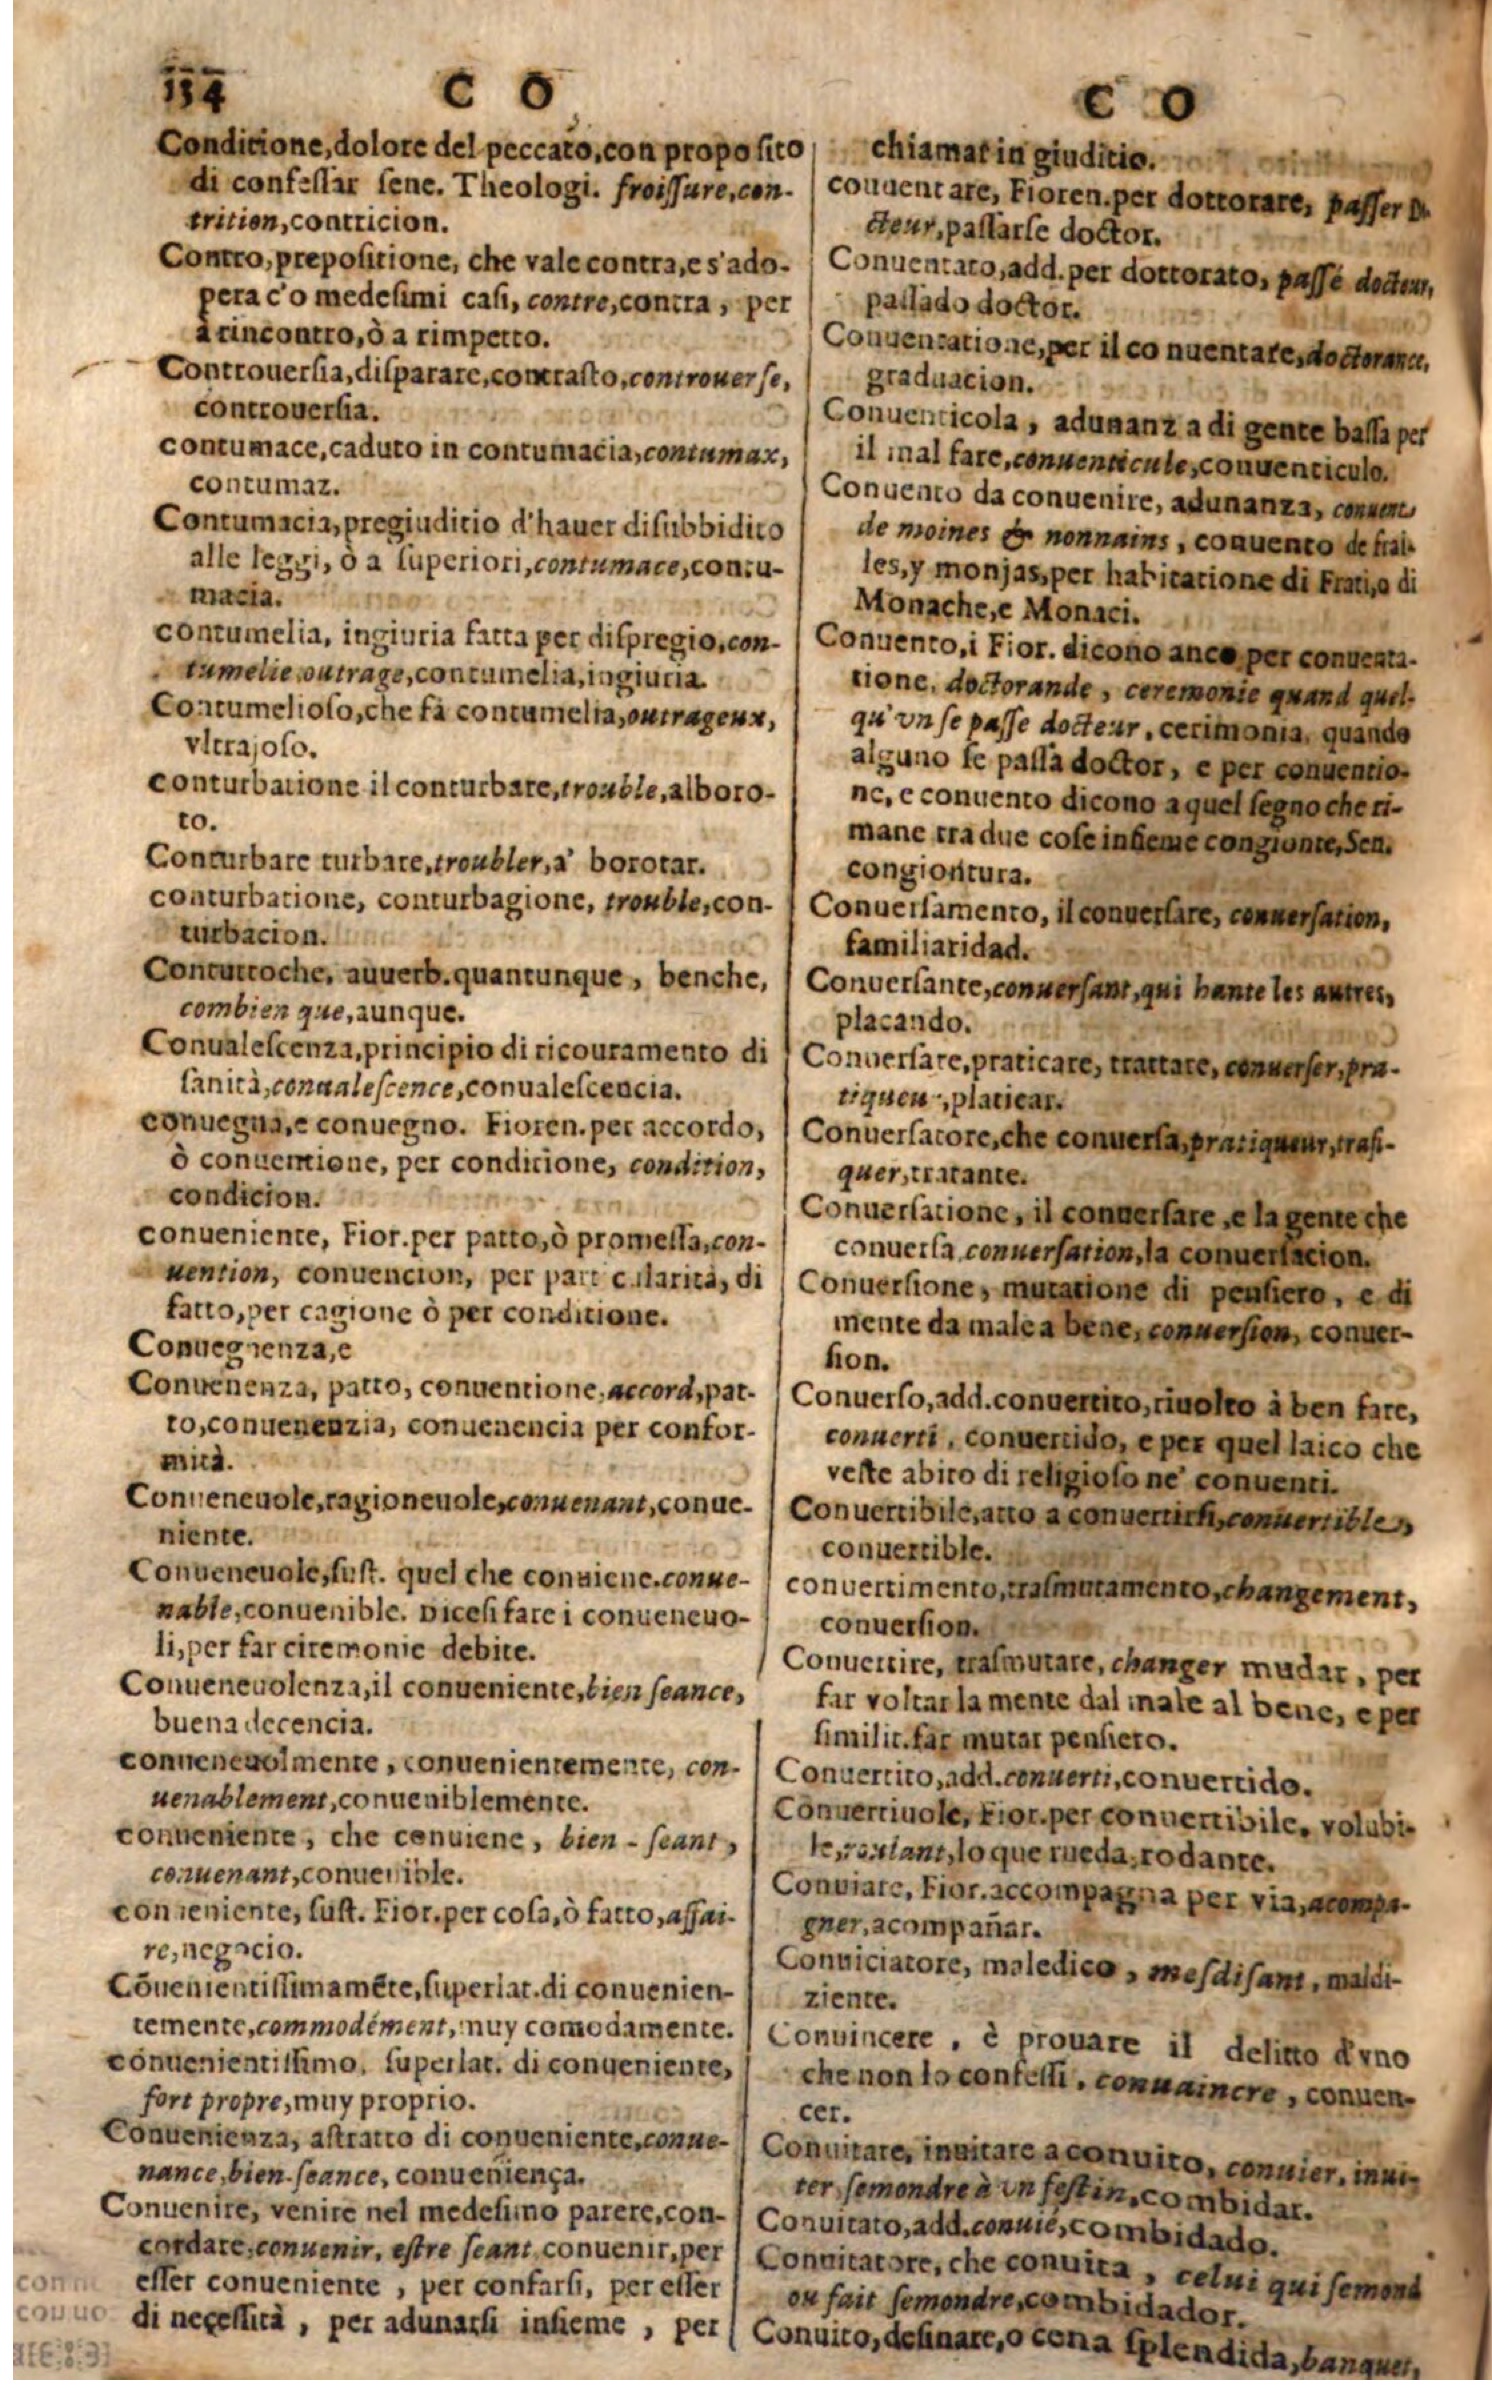 154 C O
Conditione, dolore del peccato, con proposito
di confessar sene. Theologi. froissure, con-
trition, contricion.
Contro, prepositione, che vale contra, e s'ado-
pera c'o medesimi casi, contre, contra, per
à rincontro, ò a rimpetto.
Controuersia, disparare, contrasto, controuerse,
controuersia.
contumace, caduto in contumacia, contumax,
contumaz.
Contumacia, pregiuditio d'hauer disubbidito
alle leggi, ò a superiori, contumace, contu-
macia.
contumelia, ingiuria fatta per dispregio, con-
tumelie outrage, contumelia, ingiuria.
Contumelioso, che fà contumelia, outrageux,
vltrajoso.
conturbatione il conturbare, trouble, alboro-
to.
Conturbare turbare, troubler, a' borotar.
conturbatione, conturbagione, trouble, con-
turbacion.
Contuttoche, auuerb. quantunque, benche,
combien que, aunque.
Conualescenza, principio di ricouramento di
sanità, conualescence, conualescencia.
conuegna, e conuegno. Fioren. per accordo,
ò conuentione, per conditione, condition,
condicion.
conueniente, Fior. per patto, ò promessa, con-
uention, conuencion, per part cularità, di
fatto, per cagione ò per conditione.
Conuegnenza, e
Conuenenza, patto, conuentione, accord, pat-
to, conuenenzia, conuenencia per confor-
mità.
Conueneuole, ragioneuole, conuenant, conue-
niente.
Conueneuole, sust. quel che conuiene. conue-
nable, conuenible. Dicesi fare i conueneuo-
li, per far ciremonie debite.
Conueneuolenza, il conueniente, bien seance,
buena decencia.
conueneuolmente, conuenientemente, con-
uenablement, conueniblemente.
conueniente, che conuiene, bien-seant,
conuenant, conuenible.
conueniente, sust. Fior. per cosa, ò fatto, affai-
re, negocio.
Cōuenientissimamēte, superlat. di conuenien-
temente, commodément, muy comodamente.
conuenientissimo, superlat. di conueniente,
fort propre, muy proprio.
Conuenienza, astratto di conueniente, conue-
nance, bien-seance, conueniença.
Conuenire, venire nel medesimo parere, con-
cordare, conuenir, estre seant conuenir, per
esser conueniente, per confarsi, per esser
di necessità, per adunarsi insieme, per
C O
chiamar in giuditio.
conuentare, Fioren. per dottorare, passer Do-
cteur, passarse doctor.
Conuentato, add. per dottorato, passé docteur,
passado doctor.
Conuentatione, per il co nuentare, doctorance,
graduacion.
Conuenticola, adunanz a di gente bassa per
il mal fare, conuenticule, conuenticulo.
Conuento da conuenire, adunanza, conuent
de moines & nonnains, conuento de frai-
les, y monjas, per habitatione di Frati, o di
Monache, e Monaci.
Conuento, i Fior. dicono anco per conuenta-
tione, doctorande, ceremonie quand quel-
qu'vn se passe docteur, cerimonia, quando
alguno se passa doctor, e per conuentio-
ne, e conuento dicono a quel segno che ri-
mane tra due cose insieme congionte, Sen.
congiontura.
Conuersamento, il conuersare, conuersation,
familiaridad.
Conuersante, conuersant, qui hante les autres,
placando.
Conuersare, praticare, trattare, conuerser, pra-
tiqueu, platicar.
Conuersatore, che conuersa, pratiqueur, trafi-
quer, tratante.
Conuersatione, il conuersare, e la gente che
conuersa conuersation, la conuersacion.
Conuersione, mutatione di pensiero, e di
mente da male a bene, conuersion, conuer-
sion.
Conuerso, add. conuertito, riuolto à ben fare,
conuerti, conuertido, e per quel laico che
veste abito di religioso ne' conuenti.
Conuertibile, atto a conuertirsi, conuertible,
conuertible.
conuertimento, trasmutamento, changement,
conuersion.
Conuertire, trasmutare, changer mudar, per
far voltar la mente dal male al bene, e per
similit. far mutar pensiero.
Conuertito, add. conuerti, conuertido.
Conuertiuole, Fior. per conuertibile, volubi-
le, roulant, lo que rueda, rodante.
Conuiare, Fior. accompagna per via, acompa-
gner, acompañar.
Conuiciatore, maledico, mesdisant, maldi-
ziente.
Conuincere, è prouare il delitto d'vno
che non lo confessi, conuaincre, conuen-
cer.
Conuitare, inuitare a conuito, conuier, inui-
ter, semondre à vn festin, combidar.
Conuitato, add. conuié, combidado.
Conuitatore, che conuita, celui qui semond
ou fait semondre, combidador.
Conuito, desinare, o cena splendida, banquet,